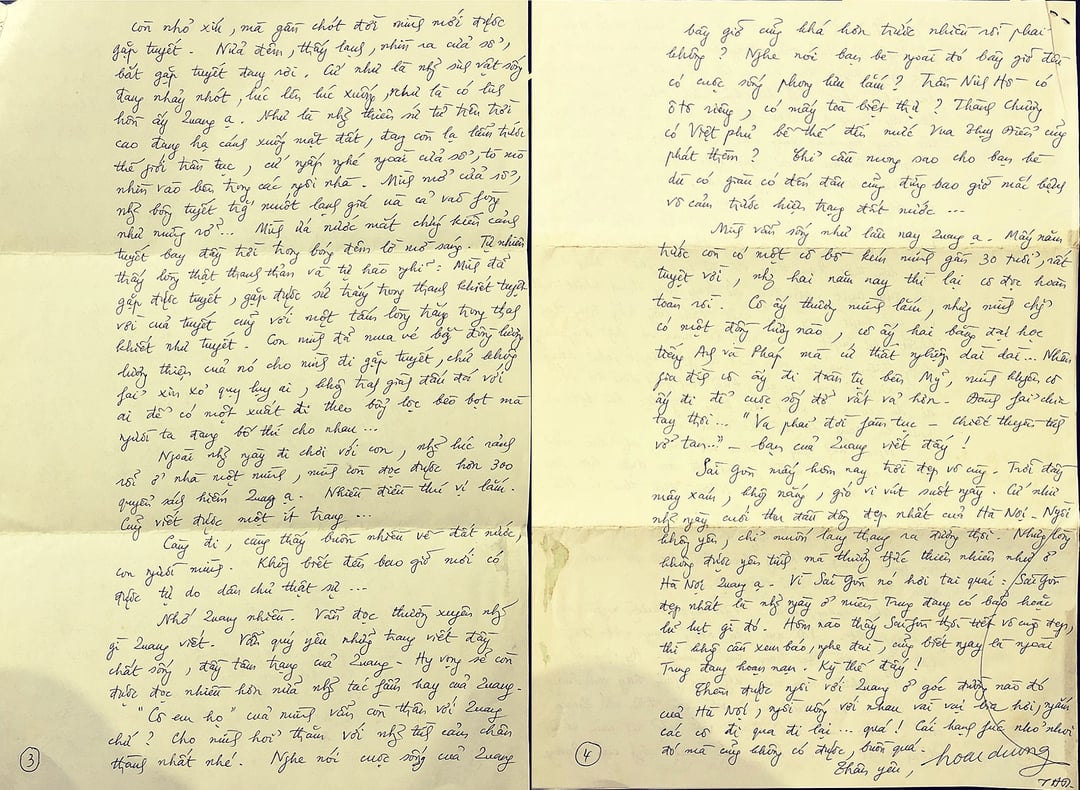 còn nhỏ xíu, mà gần chót đời mình mới được
gặp tuyết. Nửa đêm, thấy lạnh, nhìn ra cửa sổ,
bắt gặp tuyết đang rơi. Cứ như là nhg sinh vật sống
đang nhảy nhót, lúc lên lúc xuống, như là có linh
hồn ấy Quang ạ. Như là nhg thiên sứ từ trên trời
cao đang hạ cánh xuống mặt đất, đang còn lạ lẫm trước
thế giới trần tục, cứ ngấp nghé ngoài cửa sổ, tò mò
nhìn vào bên trong các ngôi nhà. Mình mở cửa sổ,
nhg bông tuyết trg muốt lạnh giá ùa cả vào fòng
như mừng rỡ... Mình ứa nước mắt chứng kiến cảnh
tuyết bay đầy trời trong bóng đêm lờ mờ sáng. Tự nhiên
thấy lòng thật thanh thản và tự hào nghĩ: Mình đã
gặp được tuyết, gặp được sứ trắng trong thanh khiết tuyệt
vời của tuyết cũg với một tấm lòng trắng trong thah
khiết như tuyết. Con mình đã mua vé bằg đồng lương
lương thiện của nó cho mình đi gặp tuyết, chứ khôg
fải xin xỏ quỵ lụy ai, khôg trah giàh đấu đá với
ai để có một xuất đi theo bổg lộc bèo bọt mà
người ta đang bố thí cho nhau...
Ngoài nhg ngày đi chơi với con, nhg lúc rảnh
rỗi ở nhà một mình, mình còn đọc được hơn 300
quyển sách hiếm Quang ạ. Nhiều điều thú vị lắm.
Cũg viết được một ít trang...
Càng đi, càng thấy buồn nhiều về đất nước,
con người mình. Khôg biết đến bao giờ mới có
được tự do dân chủ thật sự...
Nhớ Quang nhiều. Vẫn đọc thường xuyên nhg
gì Quang viết. Vẫn quý yêu những trang viết đầy
chất sống, đầy tâm trạng của Quang. Hy vọng sẽ còn
được đọc nhiều hơn nữa nhg tác fẩm hay của Quang.
"Cô em họ" của mình vẫn còn thân với Quang
chứ? Cho mình hỏi thăm với nhg tìh cảm chân
thành nhất nhé. Nghe nói cuộc sống của Quang
3
bây giờ cũg khá hơn trước nhiều rồi phải
không? Nghe nói bạn bè ngoài đó bây giờ đều
có cuộc sống phong lưu lắm? Trần Nhị Hà có
ô tô riêng, có mấy toà biệt thự? Thành Chương
có Việt phủ bề thế đến mức Vua Thụy Điển cũg
phát thèm? Chỉ cầu mong sao cho bạn bè
dù có giàu có đến đâu cũg đừng bao giờ mắc bệnh
vô cảm trước hiện trạng đất nước...
Mình vẫn sống như lâu nay Quang ạ. Mấy năm
trước còn có một cô bồ kém mình gần 30 tuổi, rất
tuyệt vời, nhg hai năm nay thì lại cô độc hoàn
toàn rồi. Cô ấy thương mình lắm, nhưg mình chẳg
có một đồng lương nào, cô ấy hai bằng đại học
tiếng Anh và Pháp mà cứ thất nghiệp dài dài... Nhân
gia đình cô ấy đi đoàn tụ bên Mỹ, mình khuyên cô
ấy đi để cuộc sốg đỡ vất vả hơn. Đàng fải chia
tay thôi... "Va phải đời fàm tục - chiếc thuyền tình
vỡ tan..." - bạn của Quang viết đấy!
Sài Gòn mấy hôm nay trời đẹp vô cùng. Trời đầy
mây xám, khôg nắng, gió vi vút suốt ngày. Cứ như
nhg ngày cuối thu đầu đông đẹp nhất của Hà Nội. Ngồi
khôg yên, chỉ muốn lang thang ra đường thôi. Nhưg lòng
không được yên tĩnh mà thưởng thức thiên nhiên như ở
Hà Nội Quang ạ. Vì Sài Gòn nó hơi tai quái: Sài Gòn
đẹp nhất là nhg ngày ở miền Trung đang có bão hoặc
lũ lụt gì đó. Hôm nào thấy Sài Gòn thời tiết vô cùg đẹp,
thì khôg cần xem báo, nghe đài, cũg biết ngay là ngoài
Trung đang hoạn nạn. Kỳ thế đấy!
Thèm được ngồi với Quang ở góc đường nào đó
của Hà Nội, ngồi uống với nhau vài vại bia hơi, ngắm
các cô đi qua đi lại... quá! Cái hạnh fúc nhỏ nhoi
đó mà cũg không có được, buồn quá.
Thân yêu,
4